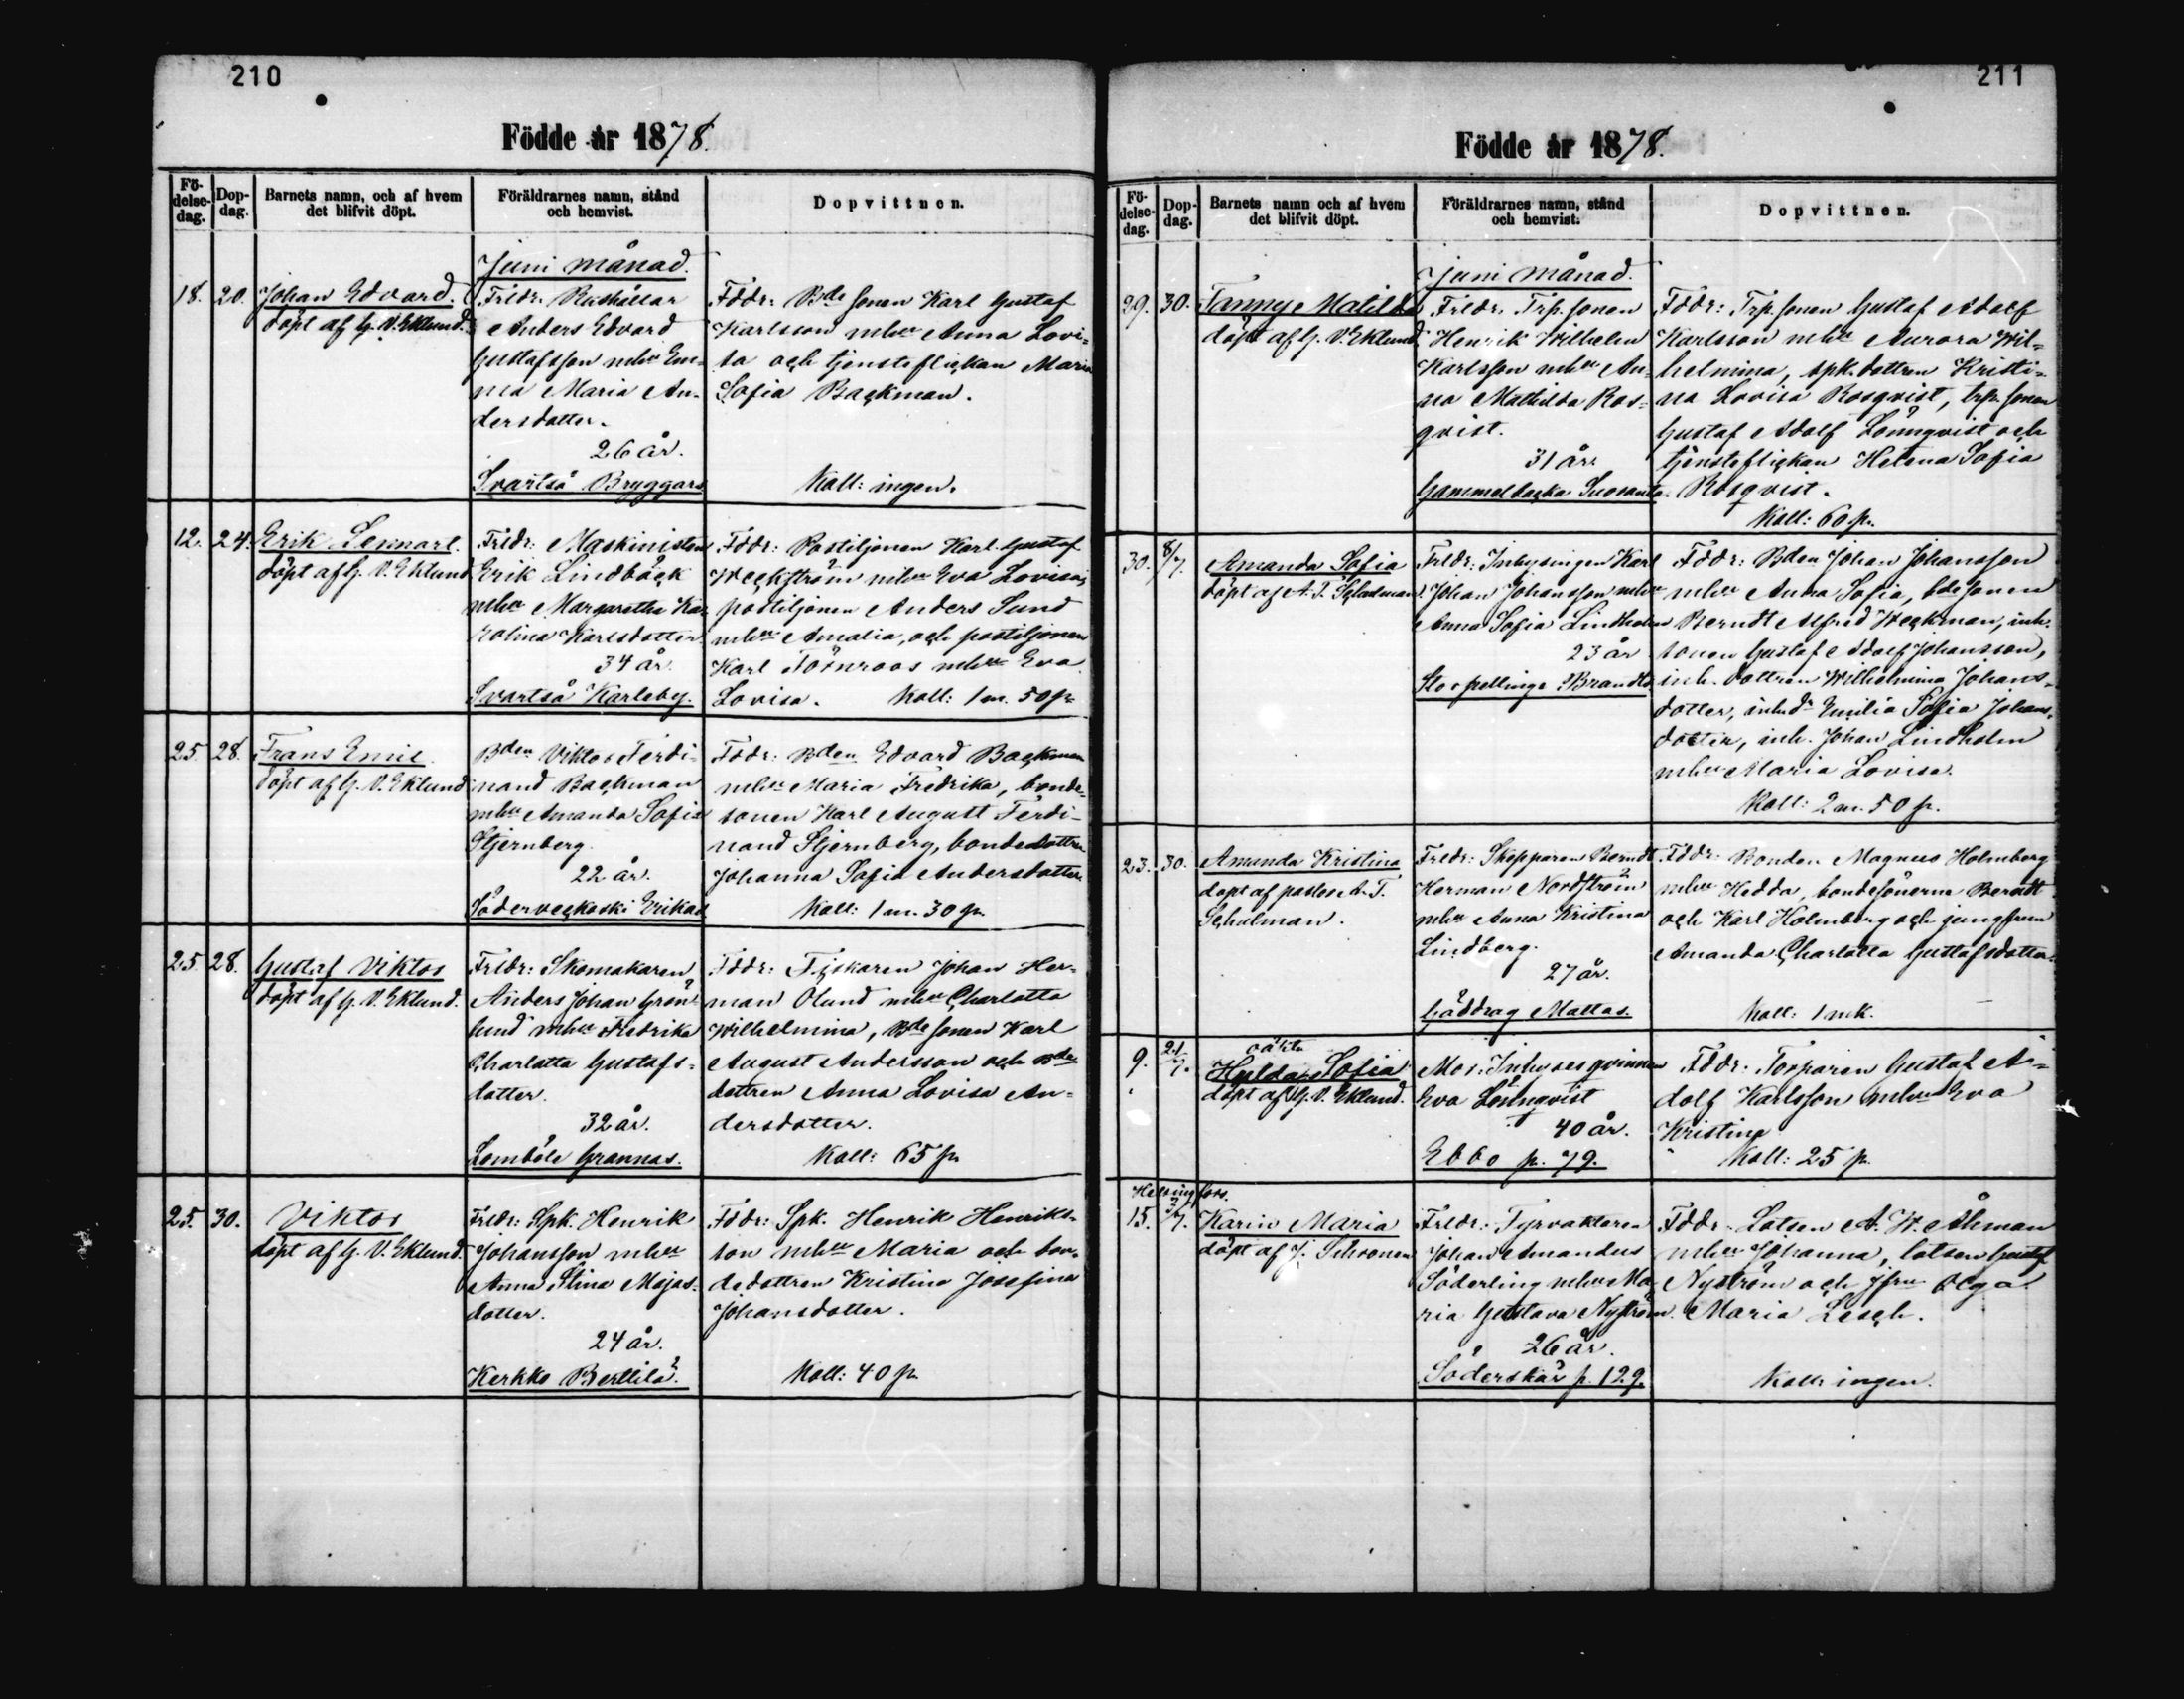 210
Födde år 1878.
Fö-
delse-
dag.
Dop-
dag.
Barnets namn, och af hvem
det blifvit döpt.
Föräldrarnes namn, stånd
och hemvist.
Dopvittnen.
Juni månad.
18. 20. Johan Edvard.
döpt af G. V. Eklund.
Frldr: Rusthållar
Anders Edvard
Gustafsson mhu Em-
ma Maria An-
dersdotter.
26 år.
Svartså Bryggars
Fddr: Bde sonen Karl Gustaf
Karlsson mhu Anna Lovi-
sa och tjensteflickan Maria
Sofia Backman.
Koll: ingen.
12. 24. Erik Lennart.
döpt af G. V. Eklund
Frldr: Maskinisten
Erik Lindbäck
mhu Margaretha Ka-
rolina Karlsdotter
34 år.
Svartså Karleby.
Fddr: Postiljonen Karl Gustaf
Weckström mhu Eva Lovisa,
postiljonen Anders Sund
mhu Amalia, och postiljonen
Karl Törnroos mhu Eva
Lovisa. Koll: 1 m. 50 p.
25. 28. Frans Emil.
döpt af G. V. Eklund
Bden Viktor Ferdi-
nand Backman
mhu Amanda Sofia
Stjernberg.
22 år.
Söderveckoski Erikas
Fddr: Bden Edvard Backman
mhu Maria Fredrika, bonde-
sonen Karl August Ferdi-
nand Stjernberg, bondedottren
Johanna Sofia Andersdotter
Koll: 1 m. 30 p.
25. 28. Gustaf Viktor
döpt af G. V. Eklund.
Frldr: Skomakaren
Anders Johan Grön-
lund mhu Fredrika
Charlotta Gustafs-
dotter.
32 år.
Lomböle Grannas.
Fddr: Fiskaren Johan Her-
man Ölund mhu Charlotta
Wilhelmina, Bde sonen Karl
August Andersson och Bde
dottren Anna Lovisa An-
dersdotter.
Koll: 65 p.
25. 30. Viktor
döpt af G. V. Eklund.
Frldr: Spk. Henrik
Johansson mhu
Anna Stina Majas-
dotter.
24 år.
Kerkko Berttilä.
Fddr: Spk. Henrik Henriks-
son mhu Maria och bon-
dedottren Kristina Josefina
Johansdotter.
Koll: 40 p.
211
Födde år 1878.
Fö-
delse-
dag.
Dop-
dag.
Barnets namn och af hvem
det blifvit döpt.
Föräldrarnes namn, stånd
och hemvist.
Dopvittnen.
Juni månad.
29. 30. Fanny Matilda
döpt af G. V. Eklund.
Frldr: Trp. sonen
Henrik Wilhelm
Karlsson mhu An-
na Mathilda Ros-
qvist.
31 år.
Gammelbacka Suosanta.
Fddr: Trp. sonen Gustaf Adolf
Karlsson mhu Aurora Wil-
helmina, spk. dottren Kristi-
na Lovisa Rosqvist, trp. sonen
Gustaf Adolf Lönnqvist och
tjensteflickan Helena Sofia
Rosqvist.
Koll: 60 p.
30. 8/7. Amanda Sofia
döpt af A. T. Schulman.
Frldr: Inhysingen Karl
Johan Johansson mhu
Anna Sofia Lindholm
23 år
Storpellinge Brandts
Fddr: Bden Johan Johansson
mhu Anna Sofia, bde sonen
Berndt Alfred Weckman, inh.
sonen Gustaf Adolf Johansson,
inh. dottren Wilhelmina Johans-
dotter, inhdr Emilia Sofia Johans-
dotter, inh. Johan Lindholm
mhu Maria Lovisa.
Koll: 2 m. 50 p.
23. 30. Amanda Kristina
döpt af pastor A. T.
Schulman.
Frldr: Skepparen Berndt
Herman Nordström
mhu Anna Kristina
Lindberg.
27 år.
Gäddrag Mattas.
Fddr: Bonden Magnus Holmberg
mhu Hedda, bondesönerne Berndt
och Karl Holmberg och jungfrun
Amanda Charlotta Gustafsdotter.
Koll: 1 mk.
9. 21/7. oäkta
Hulda Sofia
döpt af G. V. Eklund.
Mor: Inhysesqvinnan
Eva Lönnqvist
40 år.
Ebbo p. 79.
Fddr: Torparen Gustaf A-
dolf Karlsson mhu Eva
Kristina
Koll: 25 p.
Helsingfors.
15. 7. Karin Maria
döpt af J.
Frldr: Fyrvaktaren
Johan Amandus
Söderling mhu Ma-
ria Gustava Nyström.
26 år.
Söderskär p. 129.
Fddr: Lotsen A. W. Åhman
mhu Johanna, lotsen Gustaf
Nyström och jfru Olga
Maria Lesch.
Koll: ingen.